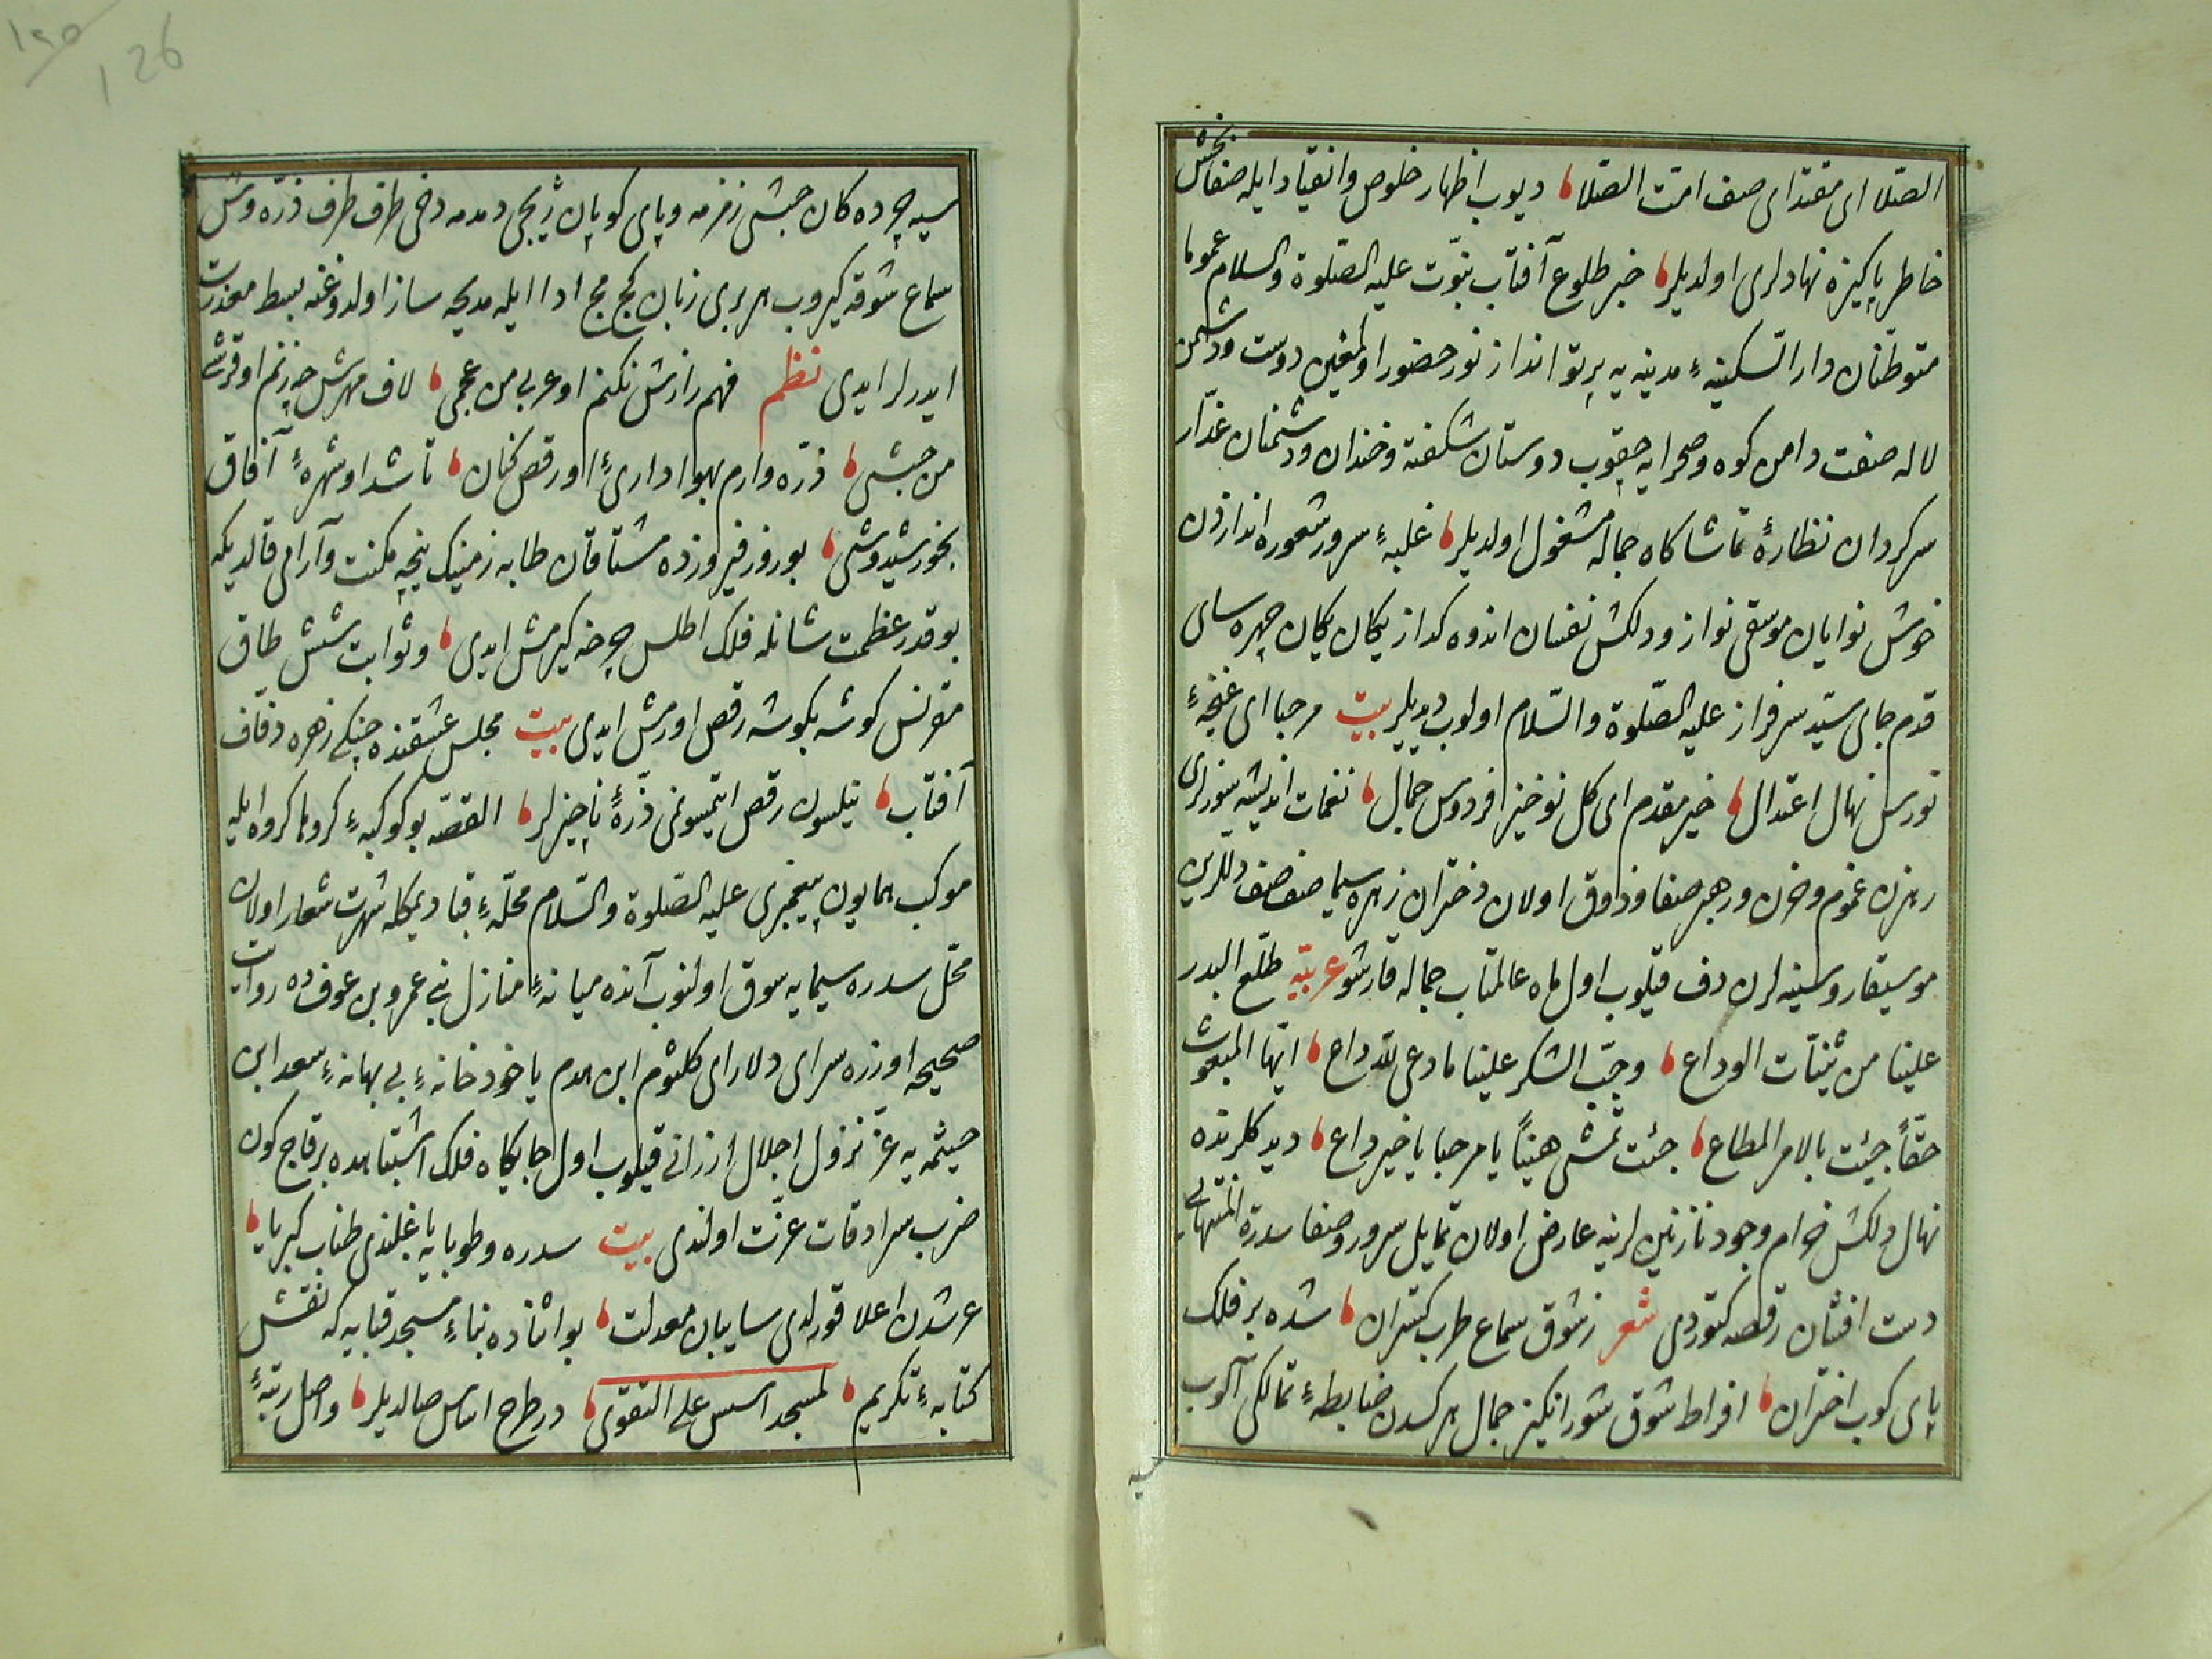 الصّلا ای مقتدای صف امّت الصّلا دیوب اظهار خلوص وانقیاد ایله صفابخش
خاطر پاکیزه نهادلری اولدیلر خبر طلوع آفتاب نبوّت علیه الصّلوة والسلام عموما
متوطّنان دار السّکینهٔ مدینه یه پرتو انداز نور حضور اولمغین دوست ودشمن
لاله صفت دامن کوه وصحرایه چقوب دوستان شکفته وخندان ودشمنان غدّار
سرکردان نظارهٔ تماشاکاه جمال مشغول اولدیلر غلبهٔ سرور شعوره اندازدن
خوش نوایان موسقی نواز ودلکش نفسان اندوه کداز یکان یکان چهره سای
قدم جای سیّد سرفراز علیه الصّلوة والسّلام اولوب دیدیلر بیت مرحبا ای غنچهٔ
نورس نهال اعتدال خیر مقدم ای کل نوخیز فردوس جمال نغمات اندیشه سوزلری
رهزن غموم وحزن ورهبر صفا وذوق اولان دختران زهره سیما صف صف دللرین
موسیقار وسینه لرن دف قیلوب اول ماه عالمتاب جماله قارشو عربیّه طلع البدر
علینا من ثنیّات الوداع وجب الشکر علینا ما دعی لله داع ایّها المبعوث
حقّاً جیئت بالامر المطاع جئت تمشی هنیاً یا مرحبا یا خیر داع دید کلرنده
نهال دلکش خرام وجود نازنین لرینه عارض اولان تمایل سرور وصفا سدرة المنتهایی
دست افشان رقصه کتوردی شعر زشوق سماع طرب کستران شده بر فلک
پای کوب اختران افراط شوق شور انکیز جمال هرکسدن ضابطهٔ تمالکی آلوب
سیه
سیه چرده کان حبشی زمزمه وپای کوبان زنجی دمدمه دخی طرف طرف ذرّه وش
سماع شوقه کیروب هربری زبان کج مج ادا ایله مدیحه ساز اولدوغنه بسط معذرت
ایدرلر ایدی نظم فهم رازش نکنم او عربی من عجمی لاف مهرش چه زنم او قرشی
من حبشی ذرّه وارم بهواداریٔ او رقص کنان تا شد او شهرهٔ آفاق
بخورشیدوشی بو روز فیروزده مشتاقان طابه زمینیک نیجه مکنت وآرامی قالدیکه
بو قدر عظمت شانله فلک اطلس چرخه کیرمش ایدی وثوابت شش طاق
مقرنس کوشه بکوشه رقص اورمش ایدی بیت مجلس عشقنده چنکی زهره دفاف
آفتاب نیلسون رقص ایتمیسونمی ذرّهٔ ناچیزلر القصّه بو کوکبهٔ کروها کروه ایله
موکب همایون پیغمبری علیه الصّلوة والسّلام محلّهٔ قبا دیمکله شهرت شعار اولان
محلّ سدره سیمایه سوق اولنوب آنده میانهٔ منازل بنی عمرو بن عوفده روایات
صحیحه اوزره سرای دلارای کلثوم ابن هدم یا خود خانهٔ بی بهانهٔ سعد ابن
حیثمه یه عزّ نزول اجلال ارزانی قیلوب اول جایکاه فلک اشتباهده بر قاچ کون
ضرب سرادقات عزّت اولندی بیت سدره وطوبایه باغلندی طناب کبریا
عرشدن اعلا قورلدی سایبان معدلت بو اثناده بناء مسجد قبایه که نقش
کتابهٔ تکریم لمسجد اسس علی التقوی در طرح اساس صالدیلر واصل رتبهٔ
126